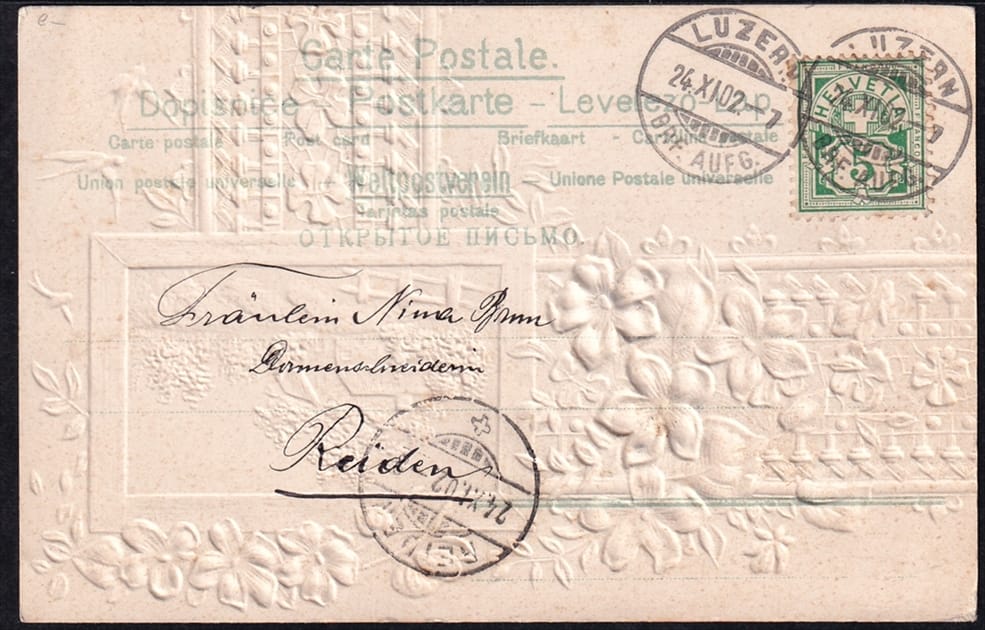 e-
Carte Postale.
Dopisnice – Postkarte – Levelezö-Lap
Carte postale – Post card – Briefkaart – Cartolina postale
Union postale universelle – Weltpostverein – Unione Postale universelle
Tarjetas postale
ОТКРЫТОЕ ПИСЬМО.
LUZERN
24.XI.02.–7
BRF. AUFG.
LUZERN
XI.02.–7
BRF. AUFG.
HELVETIA
5
Fräulein Nina Brun
Damenschneiderin
Reiden
24.XI.02
REIDEN